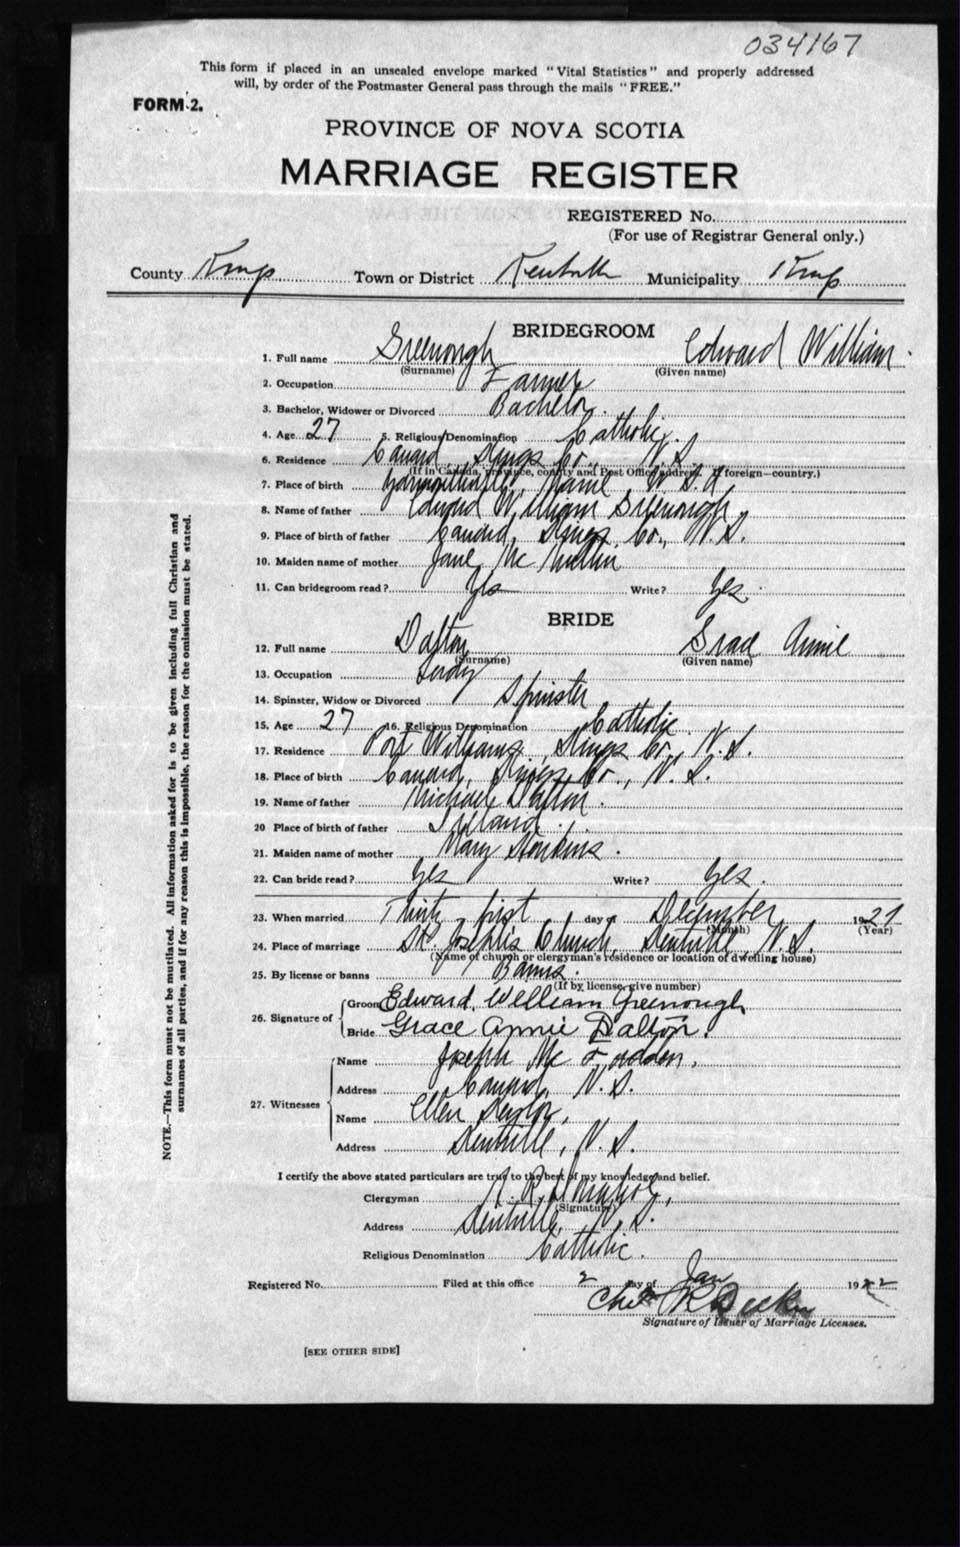 034167
This form if placed in an unsealed envelope marked "Vital Statistics" and properly addressed
will, by order of the Postmaster General pass through the mails "FREE."
FORM 2.
PROVINCE OF NOVA SCOTIA
MARRIAGE REGISTER
REGISTERED No.
(For use of Registrar General only.)
County Kings Town or District Kentville Municipality Kings
BRIDEGROOM
1. Full name Greenough Edward William
(Surname) (Given name)
2. Occupation Farmer
3. Bachelor, Widower or Divorced Bachelor.
4. Age 27 5. Religious Denomination Catholic.
6. Residence Canard Kings Co. N S
(If in Canada, province, county and Post Office address. If foreign—country.)
7. Place of birth Maine, U.S.A
8. Name of father Edward William Greenough
9. Place of birth of father Canard, Kings Co., N.S.
10. Maiden name of mother Jane Mc
11. Can bridegroom read? Yes Write? Yes.
BRIDE
12. Full name Dalton Grace Annie
(Surname) (Given name)
13. Occupation
14. Spinster, Widow or Divorced Spinster
15. Age 27 16. Religious Denomination Catholic.
17. Residence Port Williams, Kings Co., N.S.
18. Place of birth Canard, Kings Co., N.S.
19. Name of father Michael Dalton.
20 Place of birth of father Ireland.
21. Maiden name of mother Mary
22. Can bride read? Yes Write? Yes.
23. When married Thirty-first day of December 1921
(Month) (Year)
24. Place of marriage St. Joseph's Church, Kentville, N.S.
(Name of church or clergyman's residence or location of dwelling house)
25. By license or banns Banns.
(If by license, give number)
26. Signature of Groom Edward William Greenough
Bride Grace Annie Dalton.
27. Witnesses
Name Joseph Mc
Address Canard, N.S.
Name Ellen
Address Kentville, N.S.
I certify the above stated particulars are true to the best of my knowledge and belief.
Clergyman
(Signature)
Address Kentville, N.S.
Religious Denomination Catholic.
Registered No. Filed at this office 2 day of Jan 1922
Signature of Issuer of Marriage Licenses.
[SEE OTHER SIDE]
NOTE.—This form must not be mutilated. All information asked for is to be given including full Christian and
surnames of all parties, and if for any reason this is impossible, the reason for the omission must be stated.